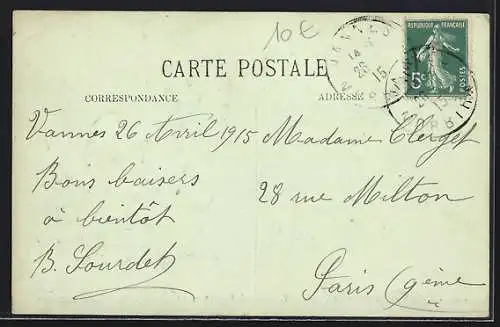 10€
VANNES
14
26
15
RÉPUBLIQUE FRANÇAISE
5c
POSTES
CARTE POSTALE
CORRESPONDANCE
ADRESSE
Vannes 26 Avril 1915
Bons baisers
à bientôt
B. Sourdet
Madame Clerget
28 rue Milton
Paris 9ème